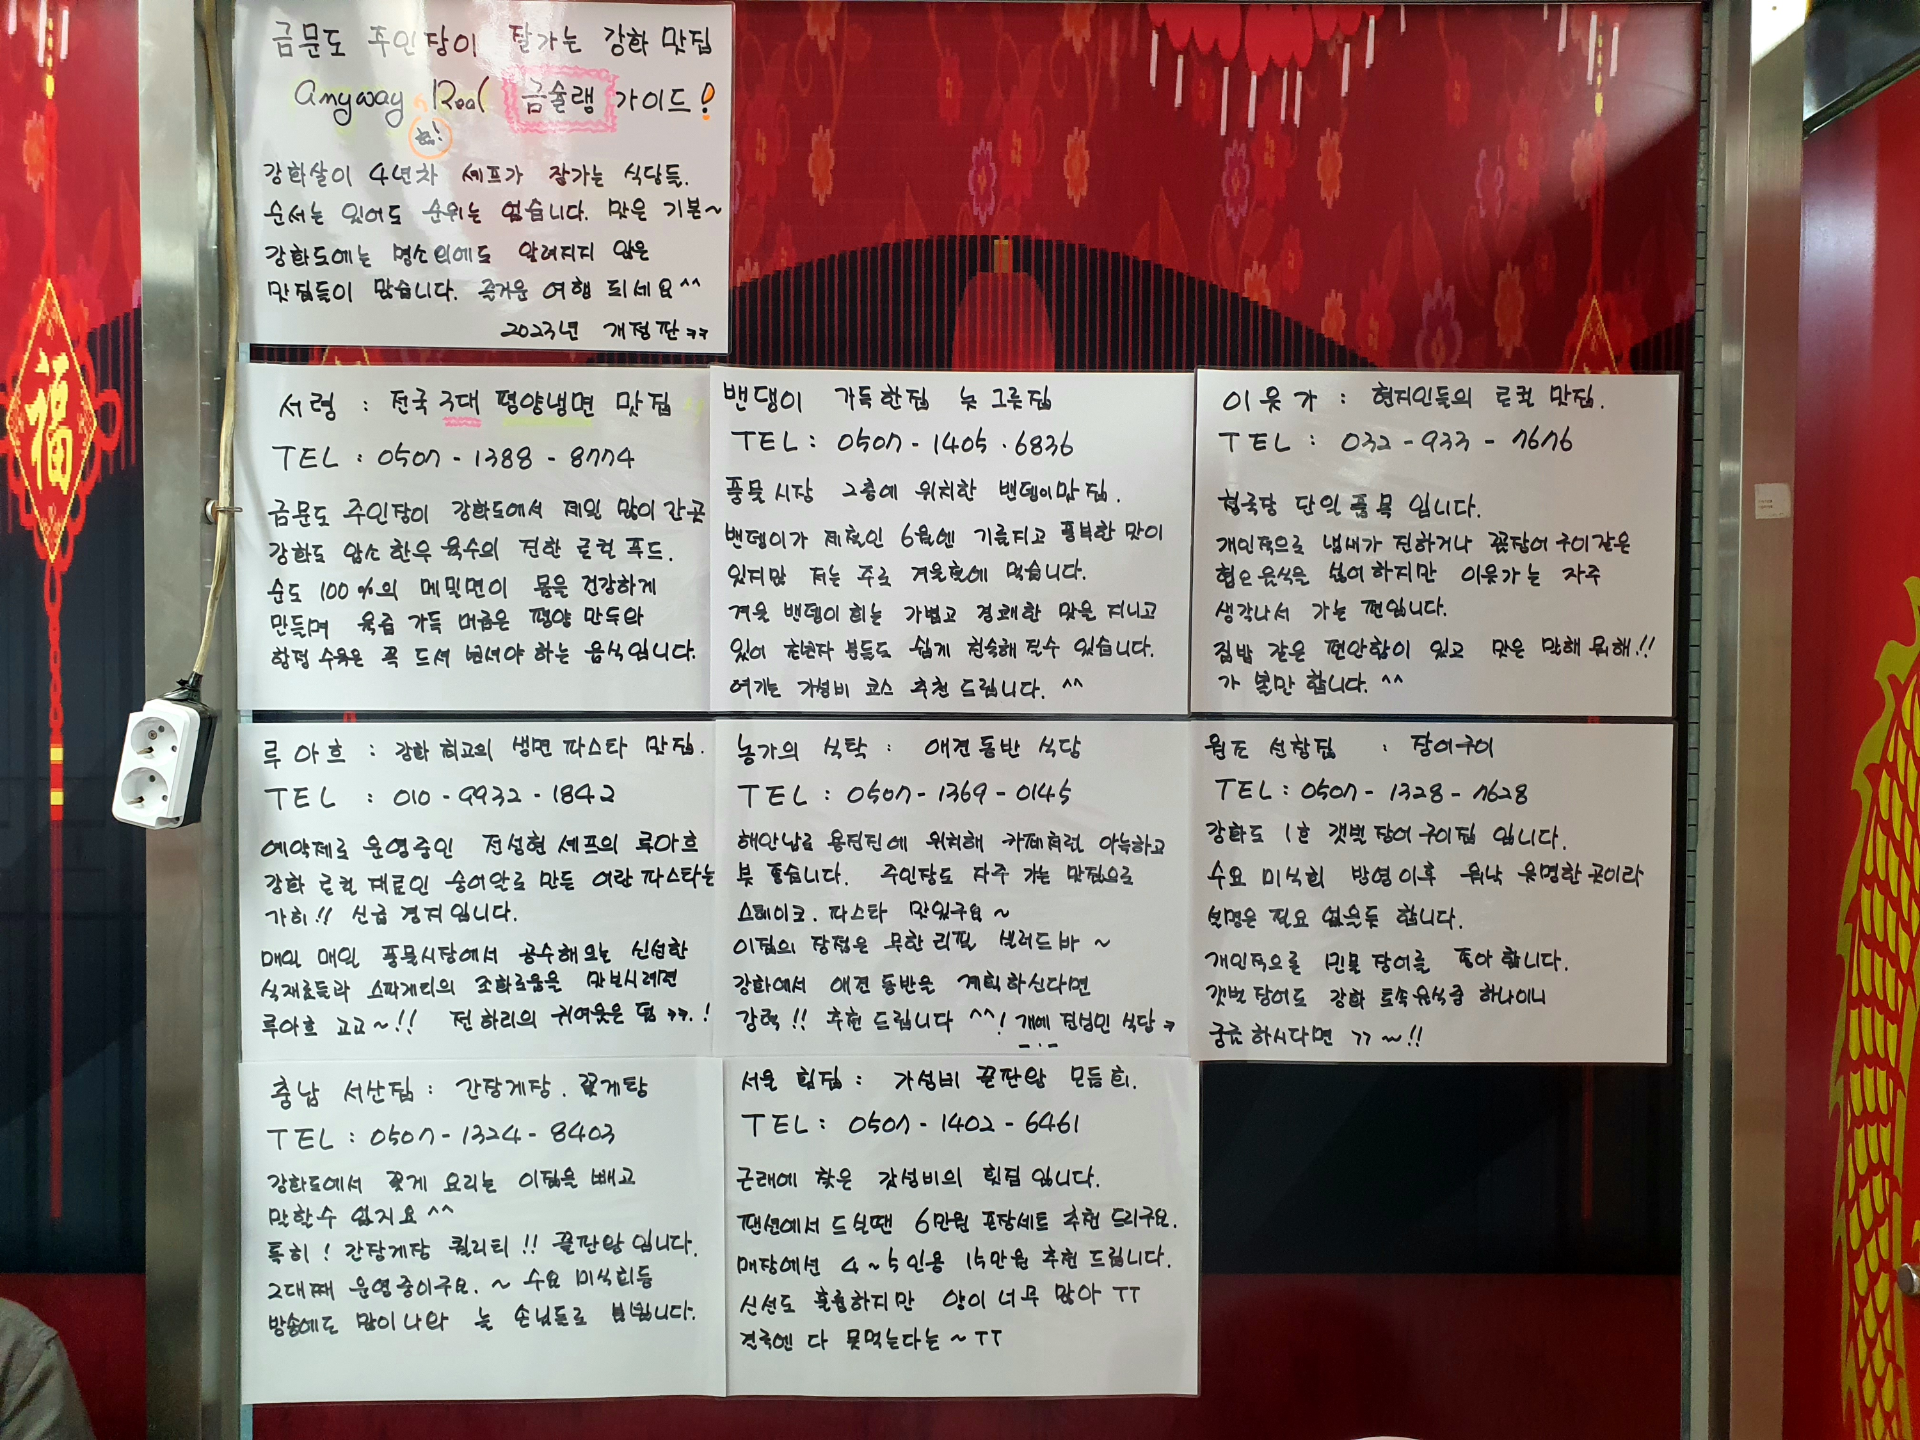 금문도 주인장이 잘가는 강화 맛집
anyway Real 금슐랭 가이드!
강화살이 4년차 셰프가 잘가는 식당들.
순서는 있어도 순위는 없습니다. 맛은 기본~
강화도에는 명소외에도 알려지지 않은
맛집들이 많습니다. 즐거운 여행 되세요^^
2023년 개정판 ㅋㅋ
福
서령 : 전국 3대 평양냉면 맛집
TEL : 0507 - 1388 - 8774
금문도 주인장이 강화도에서 제일 많이 간곳
강화도 암소한우 육수의 진한 로컬 푸드.
순도 100%의 메밀면이 몸을 건강하게
만들며 육즙 가득 머금은 평양 만두와
항정 수육은 꼭 드셔 보셔야 하는 음식입니다.
밴댕이 가득한집 놋그릇집
TEL : 0507 - 1405 · 6836
풍물시장 2층에 위치한 밴댕이맛집.
밴댕이가 제철인 6월엔 기름지고 풍부한 맛이
있지만 저는 주로 겨울철에 먹습니다.
겨울 밴댕이 회는 가볍고 경쾌한 맛을 지니고
있어 초보자 분들도 쉽게 접할수 있습니다.
여기는 가성비 코스 추천 드립니다. ^^
이웃가 : 현지인들의 로컬 맛집.
TEL : 032 - 933 - 7676
청국장 단일 품목 입니다.
개인적으로 냄새가 진하거나 꼼장어 구이같은
혐오음식을 싫어하지만 이웃가는 자주
생각나서 가는 편입니다.
집밥 같은 편안함이 있고 맛은 말해 뭐해!!
가 볼만 합니다. ^^
루아흐 : 강화 최고의 생면 파스타 맛집.
TEL : 010 - 9932 - 1842
예약제로 운영중인 전성현 셰프의 루아흐
강화 로컬 재료인 숭어알로 만든 어란 파스타는
가히!! 신급 경지입니다.
매일 매일 풍물시장에서 공수해오는 신선한
식재료들과 스파게티의 조화로움을 맛보시려면
루아흐 고고~!! 전 하리의 귀여웃은 덤 ㅋㅋ.!
농가의 식탁 : 애견동반 식당
TEL : 0507 - 1369 - 0145
해안남로 용진진에 위치해 카페처럼 아늑하고
뷰 좋습니다. 주인장도 자주 가는 맛집으로
스테이크. 파스타 맛있구요~
이집의 장점은 무한리필 샐러드바~
강화에서 애견동반을 계획하신다면
강력!! 추천 드립니다 ^^! 개에 진심인 식당 ㅋ
원조 선창집 : 장어구이
TEL : 0507 - 1328 - 7628
강화도 1호 갯벌 장어 구이집 입니다.
수요 미식회 방영이후 워낙 유명한 곳이라
설명은 필요 없을듯 합니다.
개인적으론 민물 장어를 좋아 합니다.
갯벌 장어도 강화 토속음식중 하나이니
궁금하시다면 ㄱㄱ~!!
충남 서산집 : 간장게장. 꽃게탕
TEL : 0507 - 1324 - 8403
강화도에서 꽃게 요리는 이집을 빼고
말할수 없지요^^
특히! 간장게장 퀄리티!! 끝판왕 입니다.
2대째 운영중이구요.~ 수요 미식회등
방송에도 많이나와 늘 손님들로 붐빕니다.
서울 횟집 : 가성비 끝판왕 모듬회.
TEL : 0507 - 1402 - 6461
근래에 찾은 갓성비의 횟집 입니다.
팬션에서 드실땐 6만원 포장세트 추천 드리구요.
매장에선 4~5인용 15만원 추천 드립니다.
신선도 훌륭하지만 양이 너무 많아 ㅜㅜ
결국엔 다 못먹는다는~ㅜㅜ